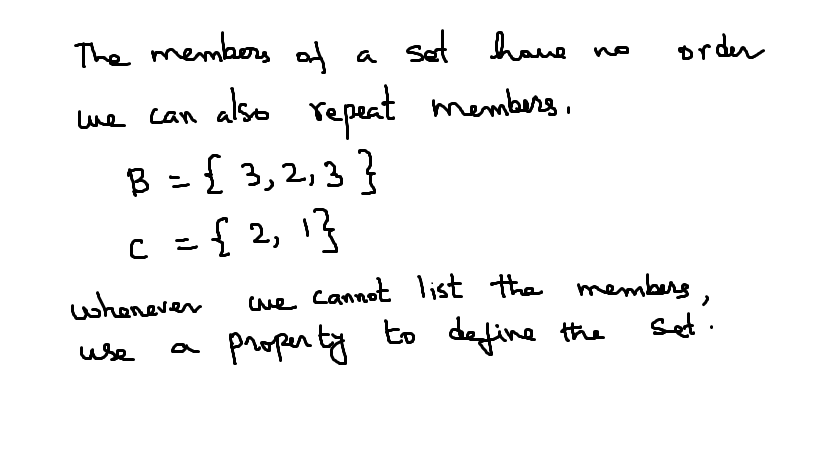 The members of a set have no order
we can also repeat members.
B = { 3, 2, 3 }
C = { 2, 1}
whenever we cannot list the members,
use a property to define the set.